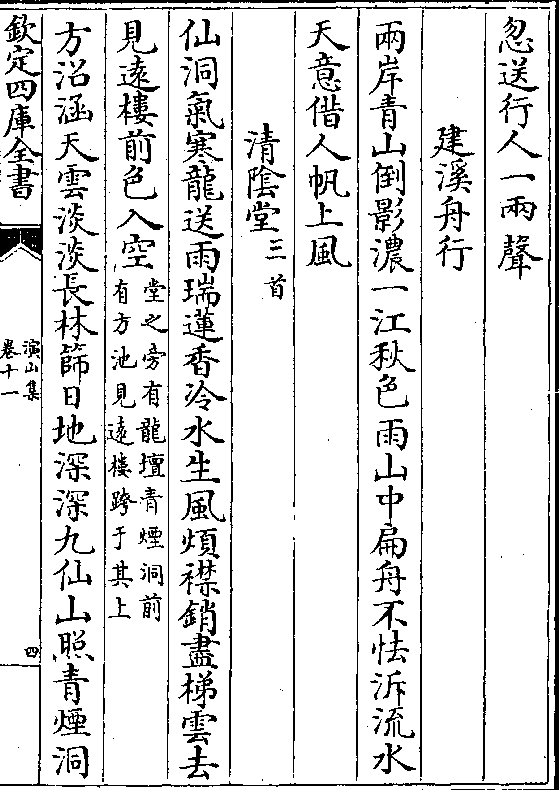 忽送行人一兩聲
建溪舟行
兩岸青山倒影濃一江秋色雨山中扁舟不怯泝流水
天意偕人帆上風
清陰堂三首
仙洞氣寒龍送雨瑞蓮香冷水生風煩襟銷盡梯雲去
見遠樓前色入空堂之旁有龍壇青煙洞前
有方池見遠樓跨于其上
方沼涵天雲淡淡長林篩日地深深九仙山照青煙洞
欽定四庫全書
演山集
卷十一
四